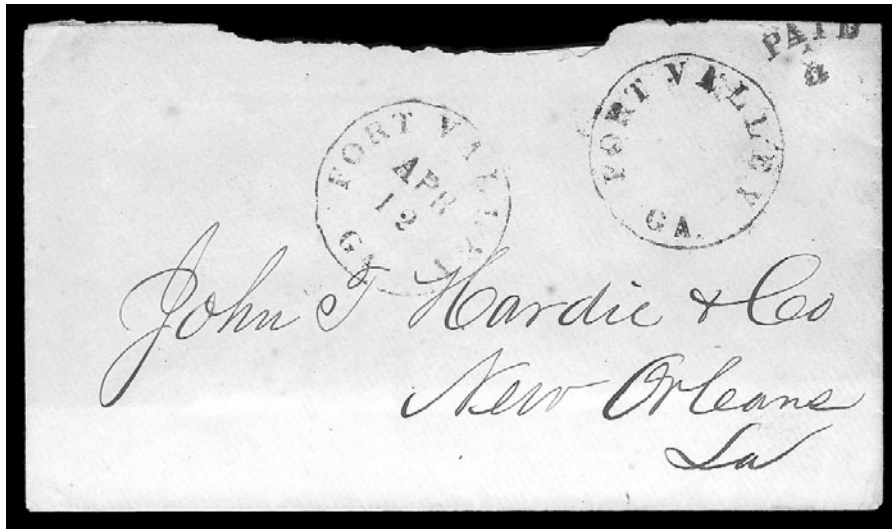 PAID
FORT VALLEY
GA.
FORT VALLEY
GA
APR
12
John T Hardie & Co
New Orleans
La